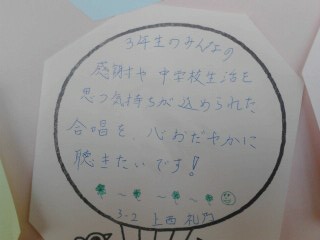 3年生のみんなの
感謝や中学校生活を
思う気持ちが込められた
合唱を、心おだやかに
聴きたいです!
3-2 上西